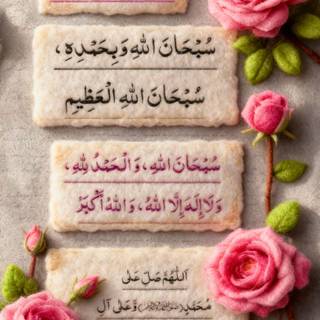 سُبْحَانَ اللهِ وَبِحَمْدِهِ،
سُبْحَانَ اللهِ الْعَظِيم
سُبْحَانَ اللهِ، وَالْحَمْدُ لِلهِ،
وَلَا إِلَهَ إِلَّا اللهُ، وَاللهُ أَكْبَرُ
اَللّٰهُمَّ صَلِّ عَلٰى
مُحَمَّدٍ ﷺ وَّعَلٰى آلِ